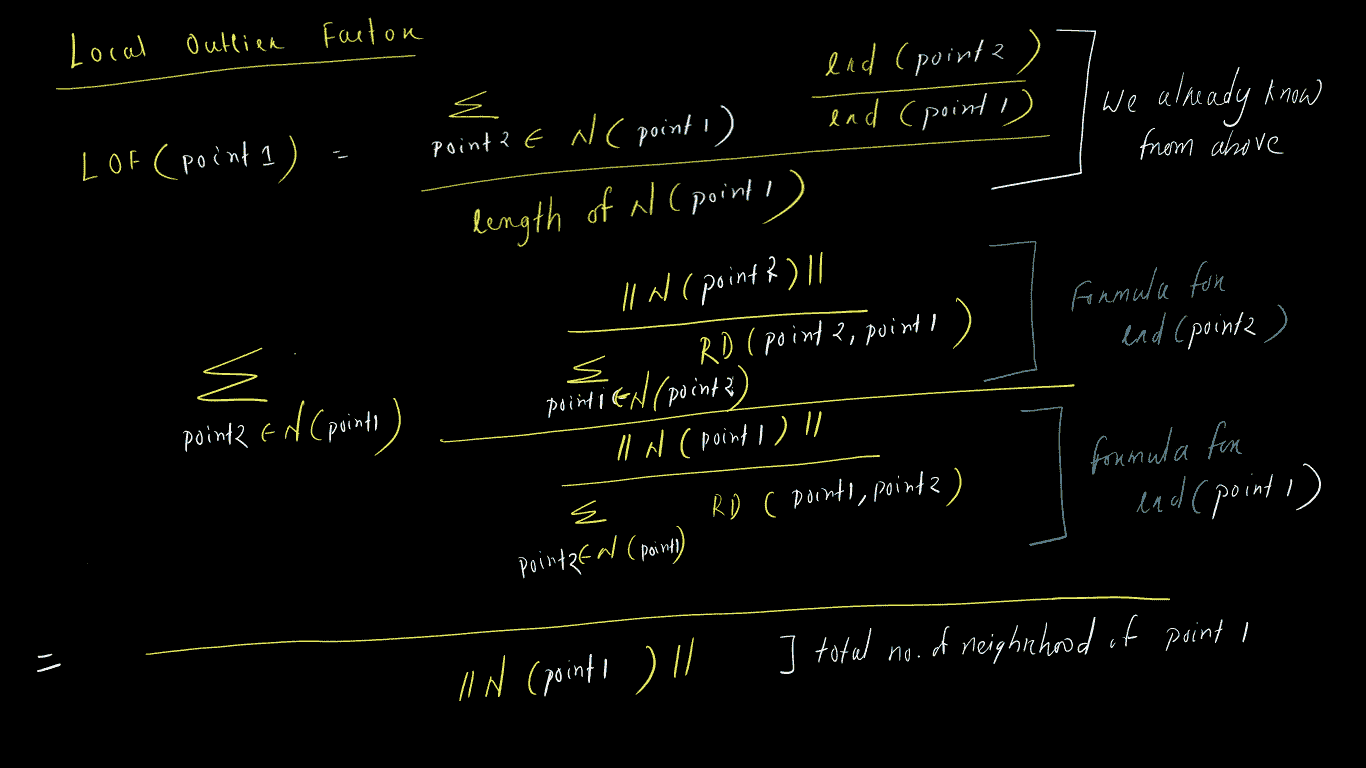 Local Outlier Factor
LOF(point 1) =
Σ
point2 ∈ N(point1)
lrd (point2)
lrd (point1)
length of N(point1)
We already know
from above
||N(point2)||
Σ
point1 ∈ N(point2)
RD(point2, point1)
Formula for
lrd(point2)
Σ
point2 ∈ N(point1)
||N(point1)||
Σ
point2 ∈ N(point1)
RD(point1, point2)
Formula for
lrd(point1)
=
||N(point1)||
] total no. of neighrhood of point 1